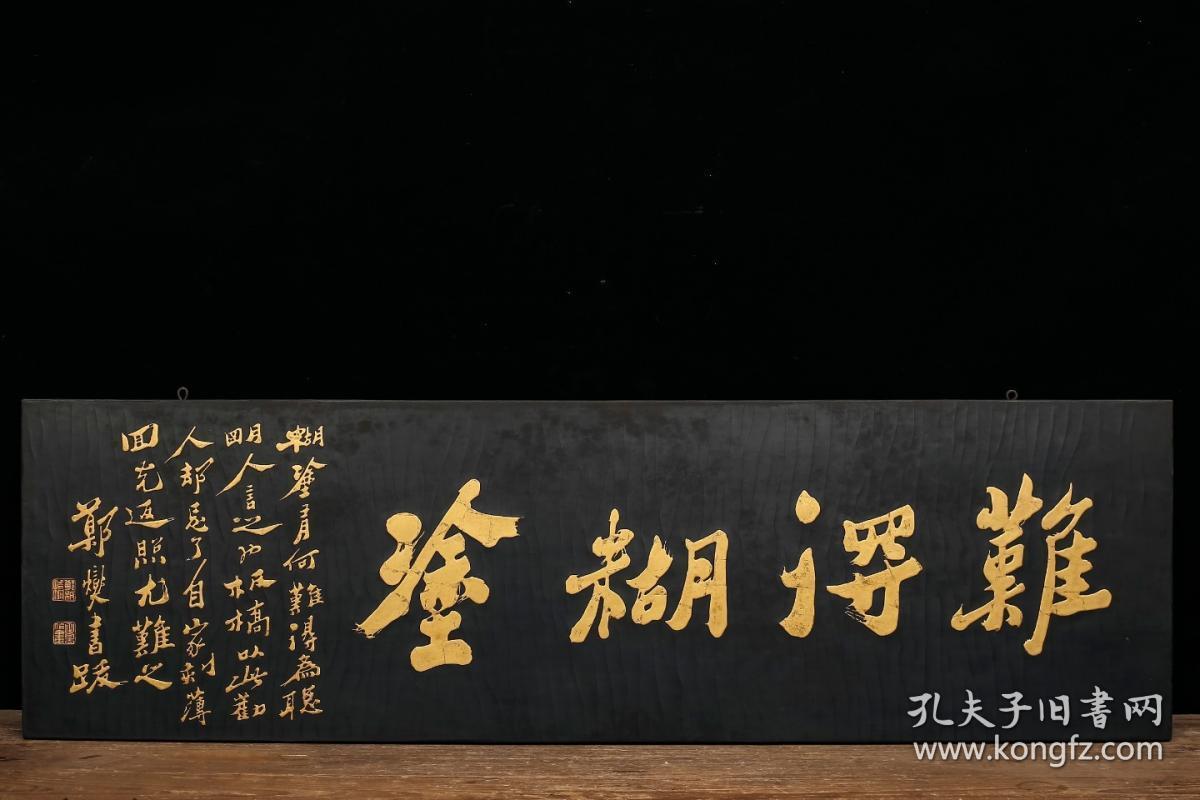 難得糊塗
糊塗有何難得為聰
明人言之也板橋以此勸
人却忘了自家刻薄
回光返照尤難之
鄭燮書跋
孔夫子旧書网
www.kongfz.com